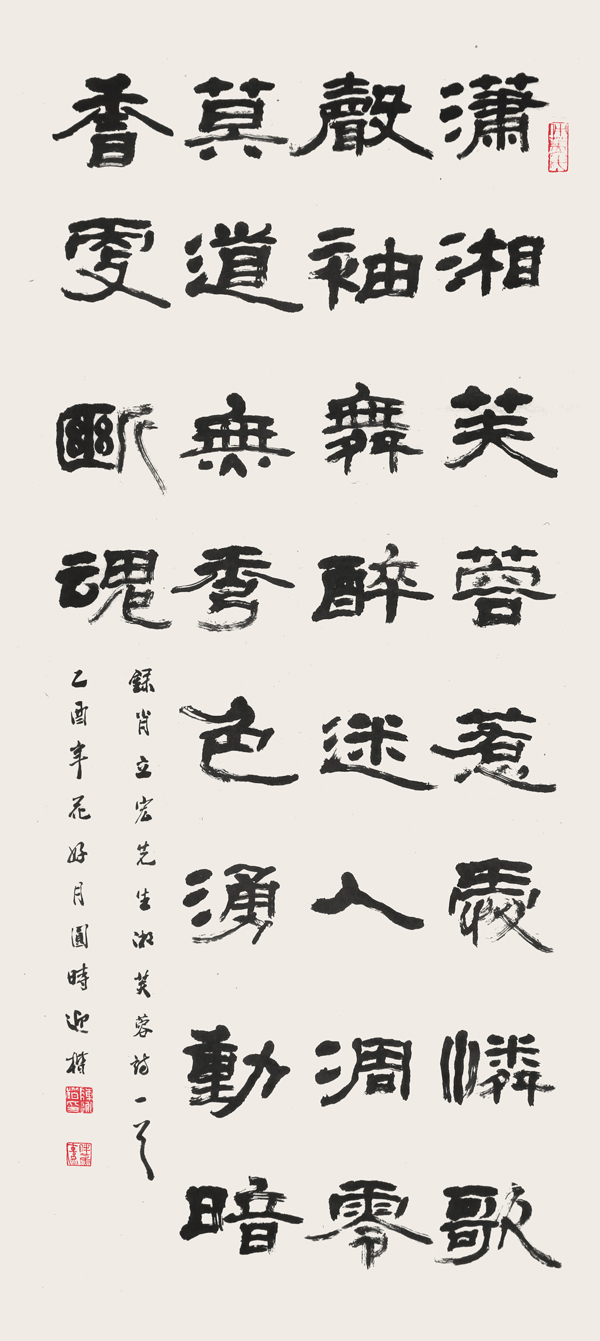 瀟湘芙蓉惹愛憐歌
聲袖舞醉迷人凋零
莫道無秀色湧動暗
香更斷魂
錄肖立宏先生湘芙蓉詩一首
乙酉年花好月圓時迎